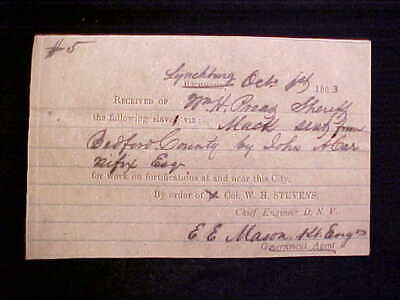 #5
Lynchburg Oct. 6th 1863
Richmond,
RECEIVED OF Wm H. Sheriff
the following slave, viz: Mack sent from
Bedford County by John A Car
nifix Esq
for work on fortifications at and near this City.
By order of Col. W. H. STEVENS,
Chief Engineer D. N. V.
E. E. Mason Lt. Engrs
Government Agent